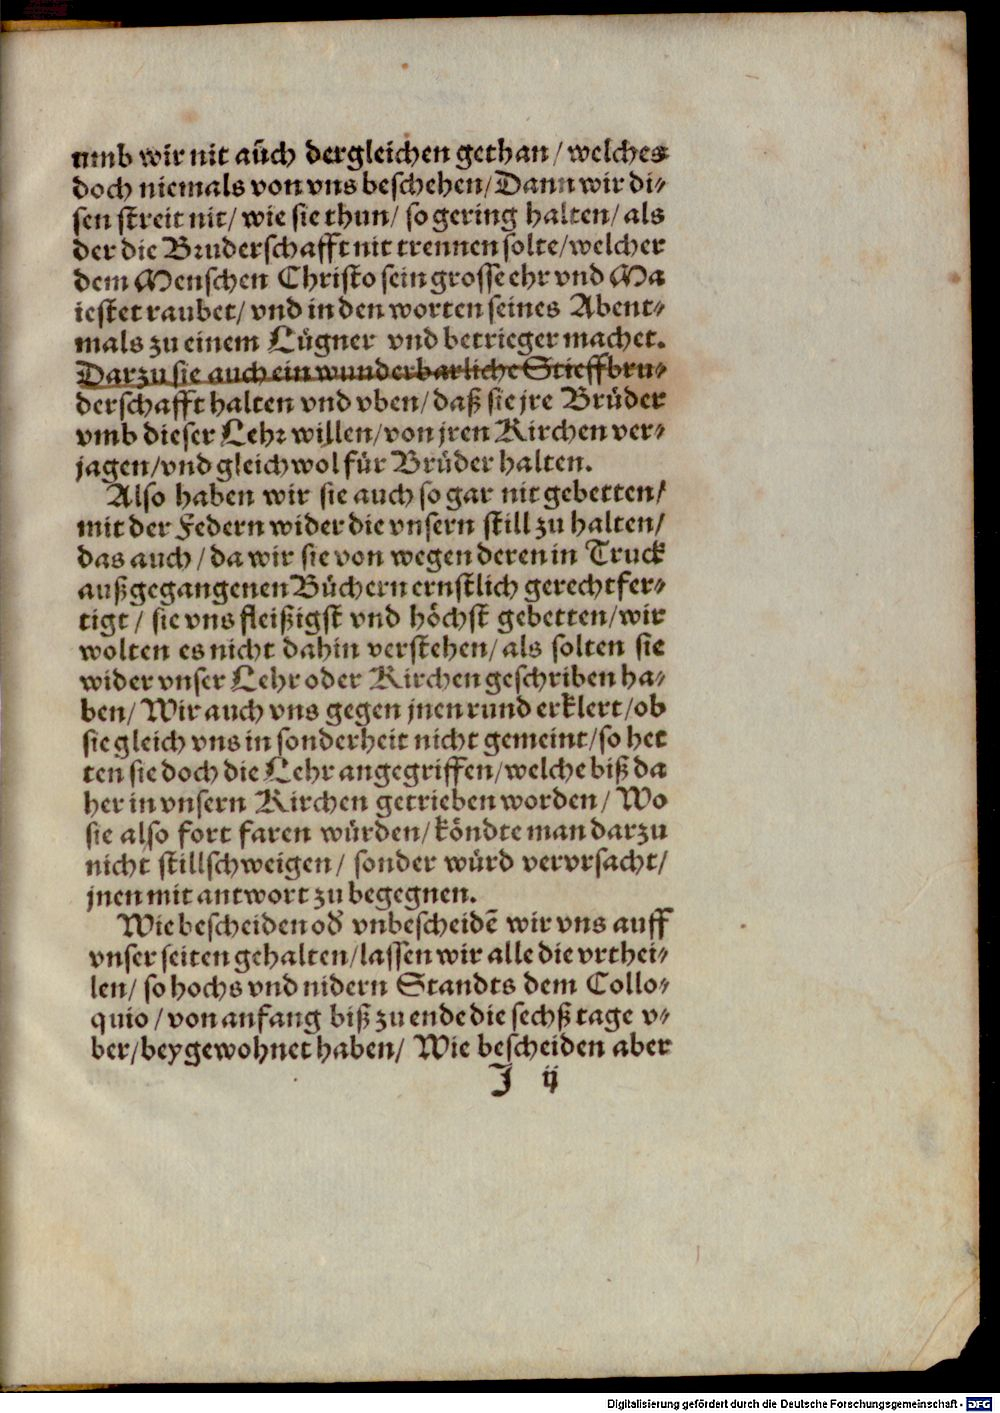 umb wir nit auch dergleichen gethan / welches
doch niemals von vns beschehen / Dann wir di⸗
sen streit nit / wie sie thun / so gering halten / als
der die Bruderschafft nit trennen solte / welcher
dem Menschen Christo sein grosse ehr vnd Ma
iestet raubet / vnd in den worten seines Abent⸗
mals zu einem Lügner vnd betrieger machet.
Darzu sie auch ein wunderbarliche Stieffbru⸗
derschafft halten vnd vben / daß sie jre Brüder
vmb dieser Lehr willen / von jren Kirchen ver⸗
jagen / vnd gleichwol für Brüder halten.
Also haben wir sie auch so gar nit gebetten /
mit der Federn wider die vnsern still zu halten /
das auch / da wir sie von wegen deren in Truck
außgegangenen Büchern ernstlich gerechtfer⸗
tigt / sie vns fleißigst vnd höchst gebetten / wir
wolten es nicht dahin verstehen / als solten sie
wider vnser Lehr oder Kirchen geschriben ha⸗
ben / Wir auch vns gegen jnen rund erklert / ob
sie gleich vns in sonderheit nicht gemeint / so het
ten sie doch die Lehr angegriffen / welche biß da
her in vnsern Kirchen getrieben worden / Wo
sie also fort faren würden / köndte man darzu
nicht stillschweigen / sonder würd vervrsacht /
jnen mit antwort zu begegnen.
Wie bescheiden od' vnbescheidē wir vns auff
vnser seiten gehalten / lassen wir alle die vrthei⸗
len / so hochs vnd nidern Standts dem Collo⸗
quio / von anfang biß zu ende die sechß tage v⸗
ber / beygewohnet haben / Wie bescheiden aber
J ij
Digitalisierung gefördert durch die Deutsche Forschungsgemeinschaft - DFG